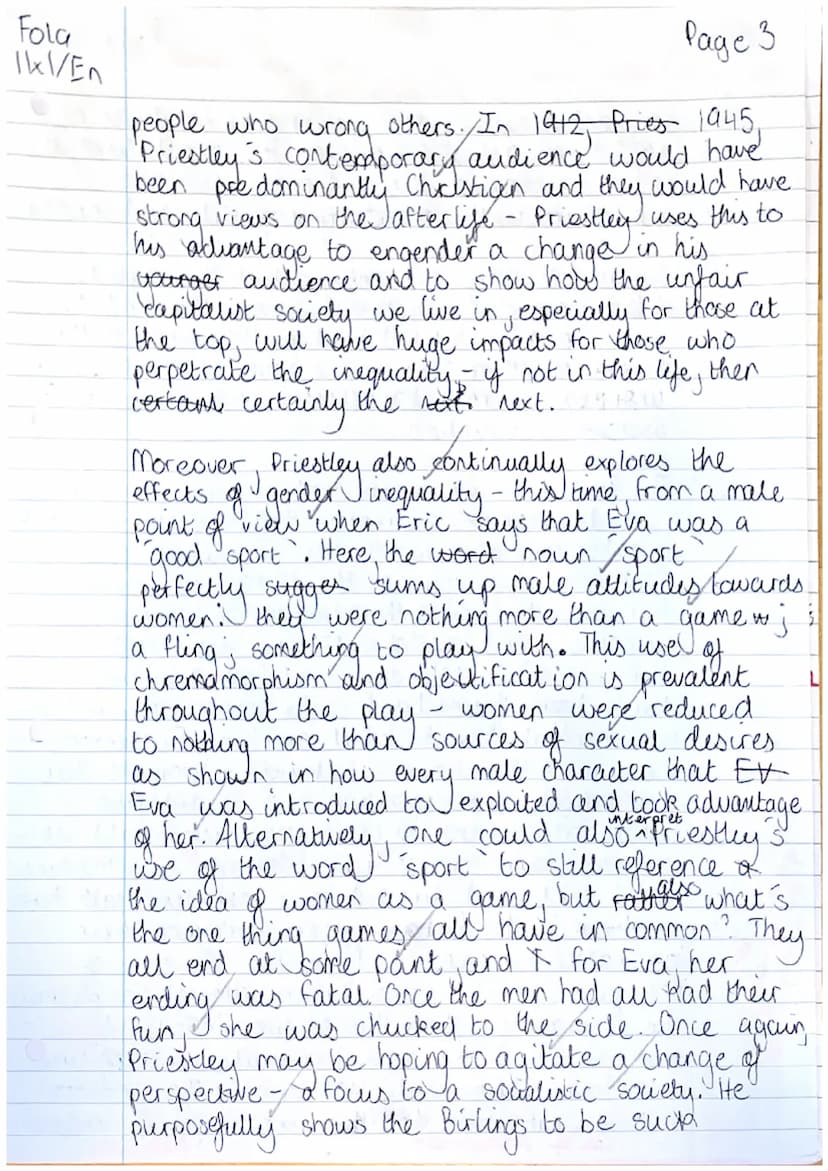 Fola
11x1/En
Page 3
people who wrong others. In 1912, Pries 1945,
Priestley's contemporary audience would have
been predominantly Christian and they would have
strong views on the afterlife - Priestley uses this to
his advantage to engender a change in his
younger audience and to show how the unfair
capitalist society we live in, especially for those at
the top, will have huge impacts for those who
perpetrate the inequality - if not in this life, then
certainl certainly the next.
Moreover, Priestley also continually explores the
effects of gender inequality - this time, from a male
point of view when Eric says that Eva was a
"good sport". Here, the word noun "sport"
perfectly sugges sums up male attitudes towards
women: they were nothing more than a game ;
a fling; something to play with. This use of
chremamorphism and objectification is prevalent
throughout the play - women were reduced
to nothing more than sources of sexual desires
as shown in how every male character that Ev
Eva was introduced to exploited and took advantage
of her. Alternatively, one could also interpret Priestley's
use of the word "sport" to still reference
the idea of women as a game, but rather also what's
the one thing games all have in common? They
all end at some point, and for Eva, her
ending was fatal. Once the men had all had their
fun, she was chucked to the side. Once again,
Priestley may be hoping to agitate a change of
perspective - a focus to a socialistic society. He
purposefully shows the Birlings to be such